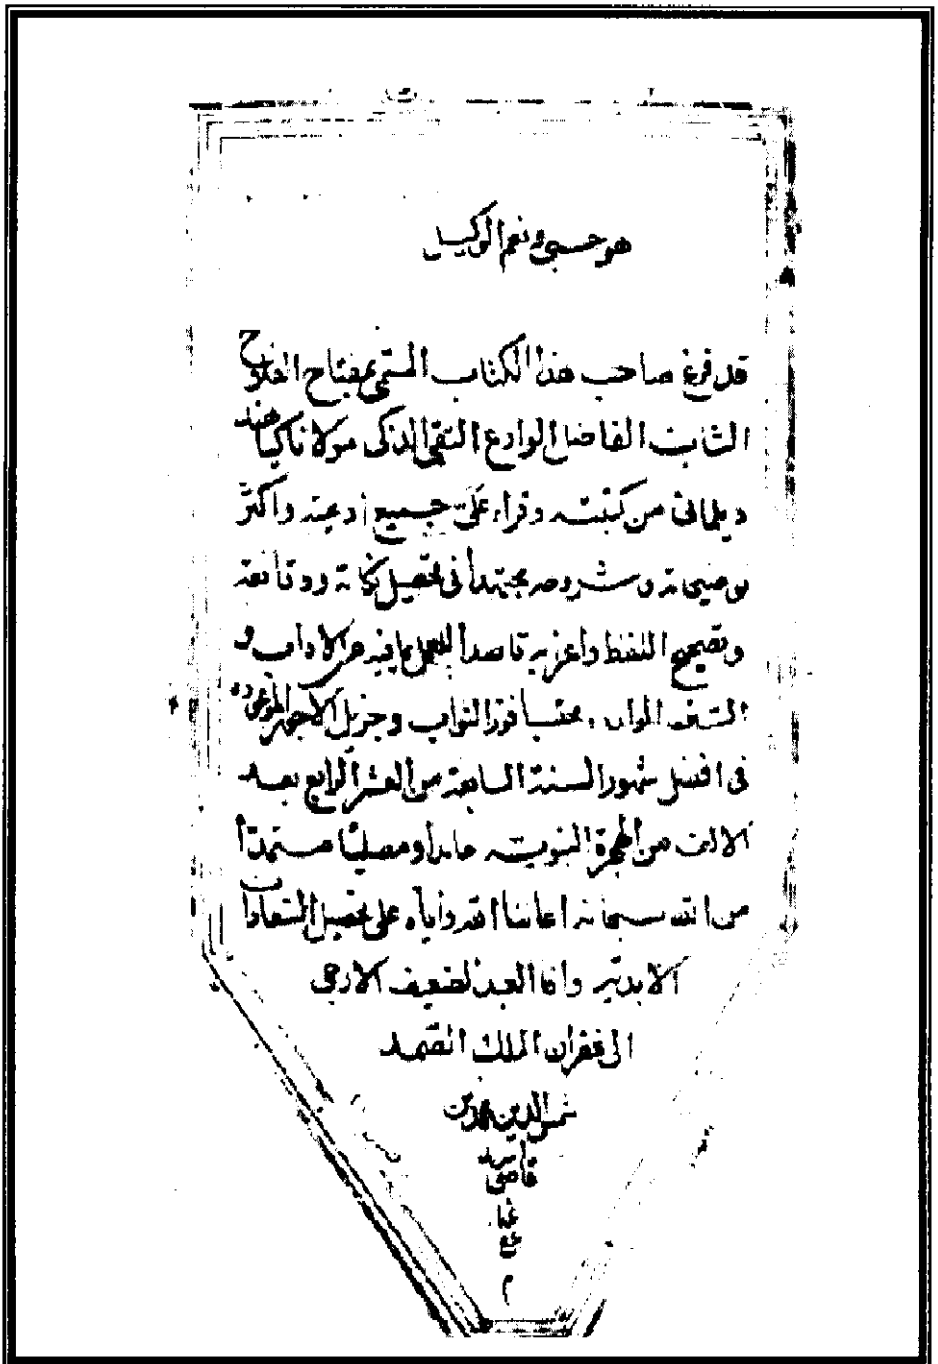 هو حسبی و نعم الوکیل
قد فرغ صاحب هذا الکتاب المسمی بمفتاح الفلاح
الشاب الفاضل الوارع التقی الذکی مولانا کیا
دیلمانی من کتبته و قراءة علیّ جمیع ادعیته واکثر
توضیحاته و شروحه مجتهداً فی تحصیل نکاته و دقائقه
و تصحیح اللفظ و اعرابه قاصداً للعمل بما فیه من الآداب و
السنن محتسبا فوز الثواب و جزیل الاجر الموعود
فی افضل شهور السنة السابعة من العشر الرابع بعد
الالف من الهجرة النبویة حامداً و مصلیًا مستمداً
من الله سبحانه اعاننا الله و ایاه علی تحصیل السعادات
الابدیّة وانا العبد الضعیف الارجی
الی غفران الملک الصّمد
شمس الدین محمد بن
قاضی